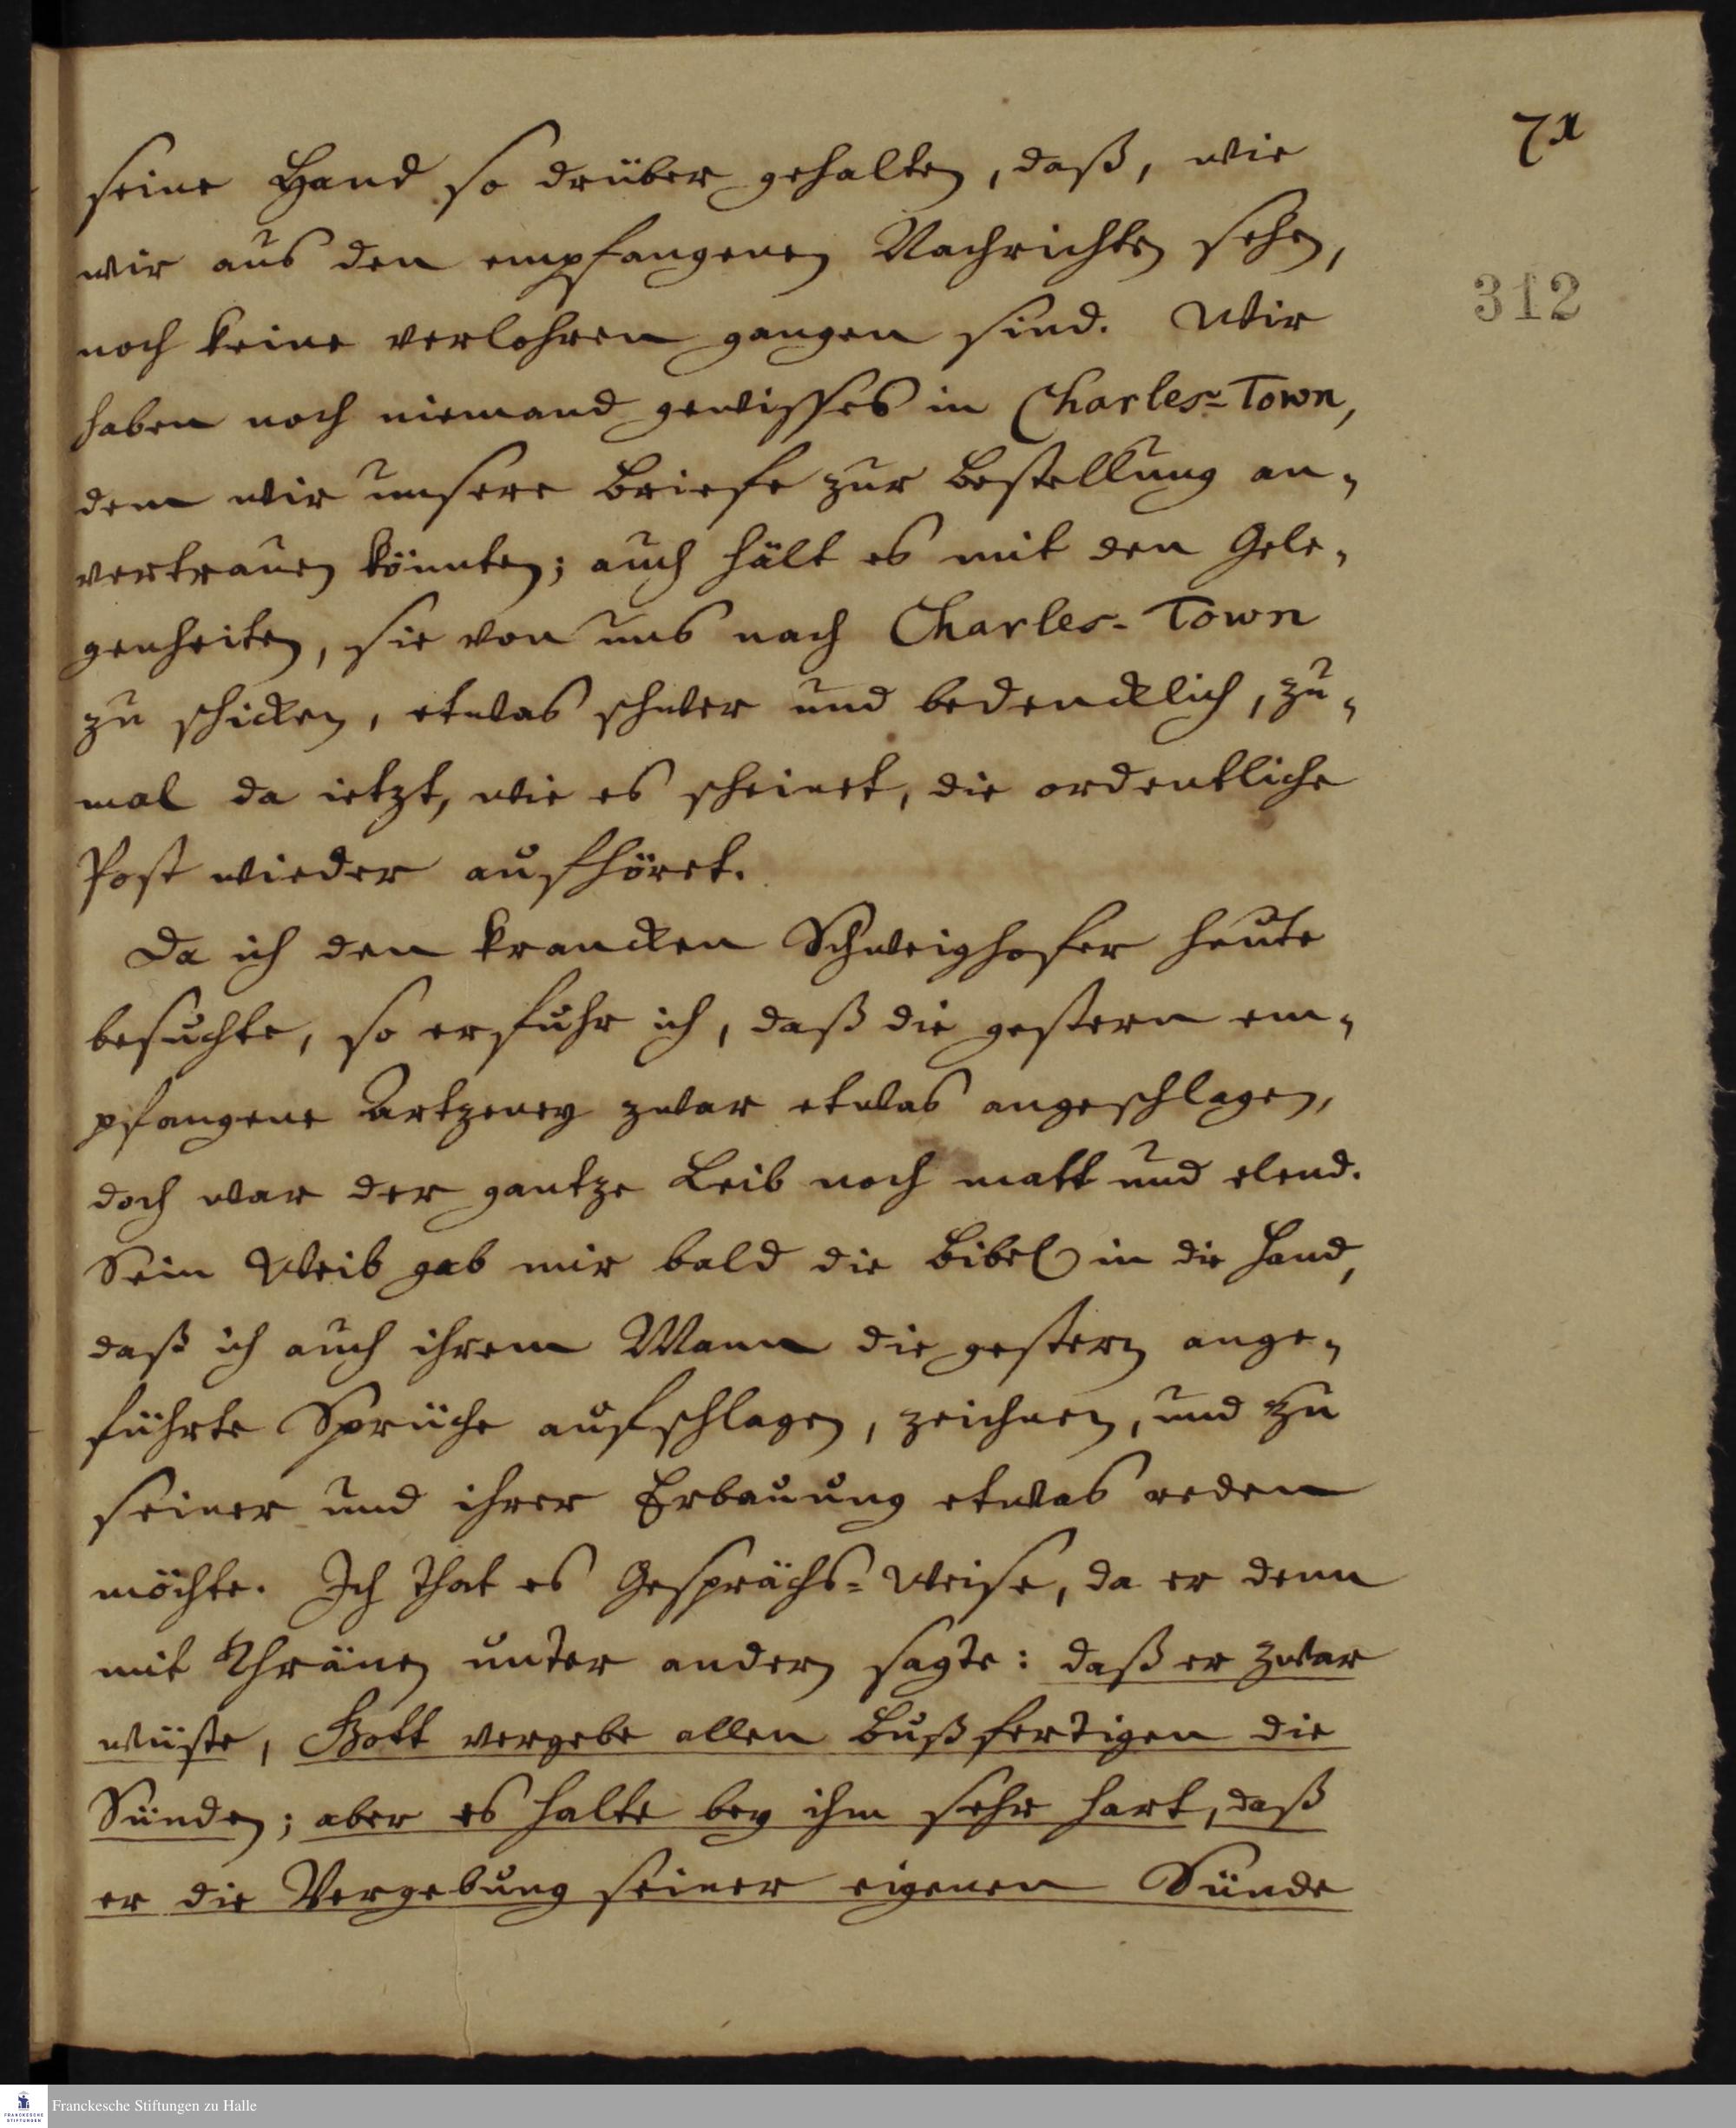 71
seine Hand so drüber gehalten, daß, wie
wir aus den empfangenen Nachrichten sehen,
312
noch keine verlohren gangen sind. Wir
haben noch niemand gewisses in Charles-Town,
dem wir unsere Briefe zur Bestellung an-
vertrauen könnten; auch hält es mit den Gele-
genheiten, sie von uns nach Charles-Town
zu schicken, etwas schwer und bedencklich, zu-
mal da ietzt, wie es scheinet, die ordentliche
Post wieder aufhöret.
Da ich den krancken Schweighofer heute
besuchte, so erfuhr ich, daß die gestern em-
pfangene Artzeney zwar etwas angeschlagen,
doch war der gantze Leib noch matt und elend.
Sein Weib gab mir bald die Bibel in die Hand,
daß ich auch ihrem Mann die gestern ange-
führte Sprüche aufschlagen, zeichnen, und zu
seiner und ihrer Erbauung etwas reden
möchte. Ich that es Gesprächs-Weise, da er denn
mit Thränen unter andern sagte: daß er zwar
wüste, Gott vergebe allen Bußfertigen die
Sünden; aber es halte bey ihm sehr hart, daß
er die Vergebung seiner eigenen Sünde
Franckesche Stiftungen zu Halle